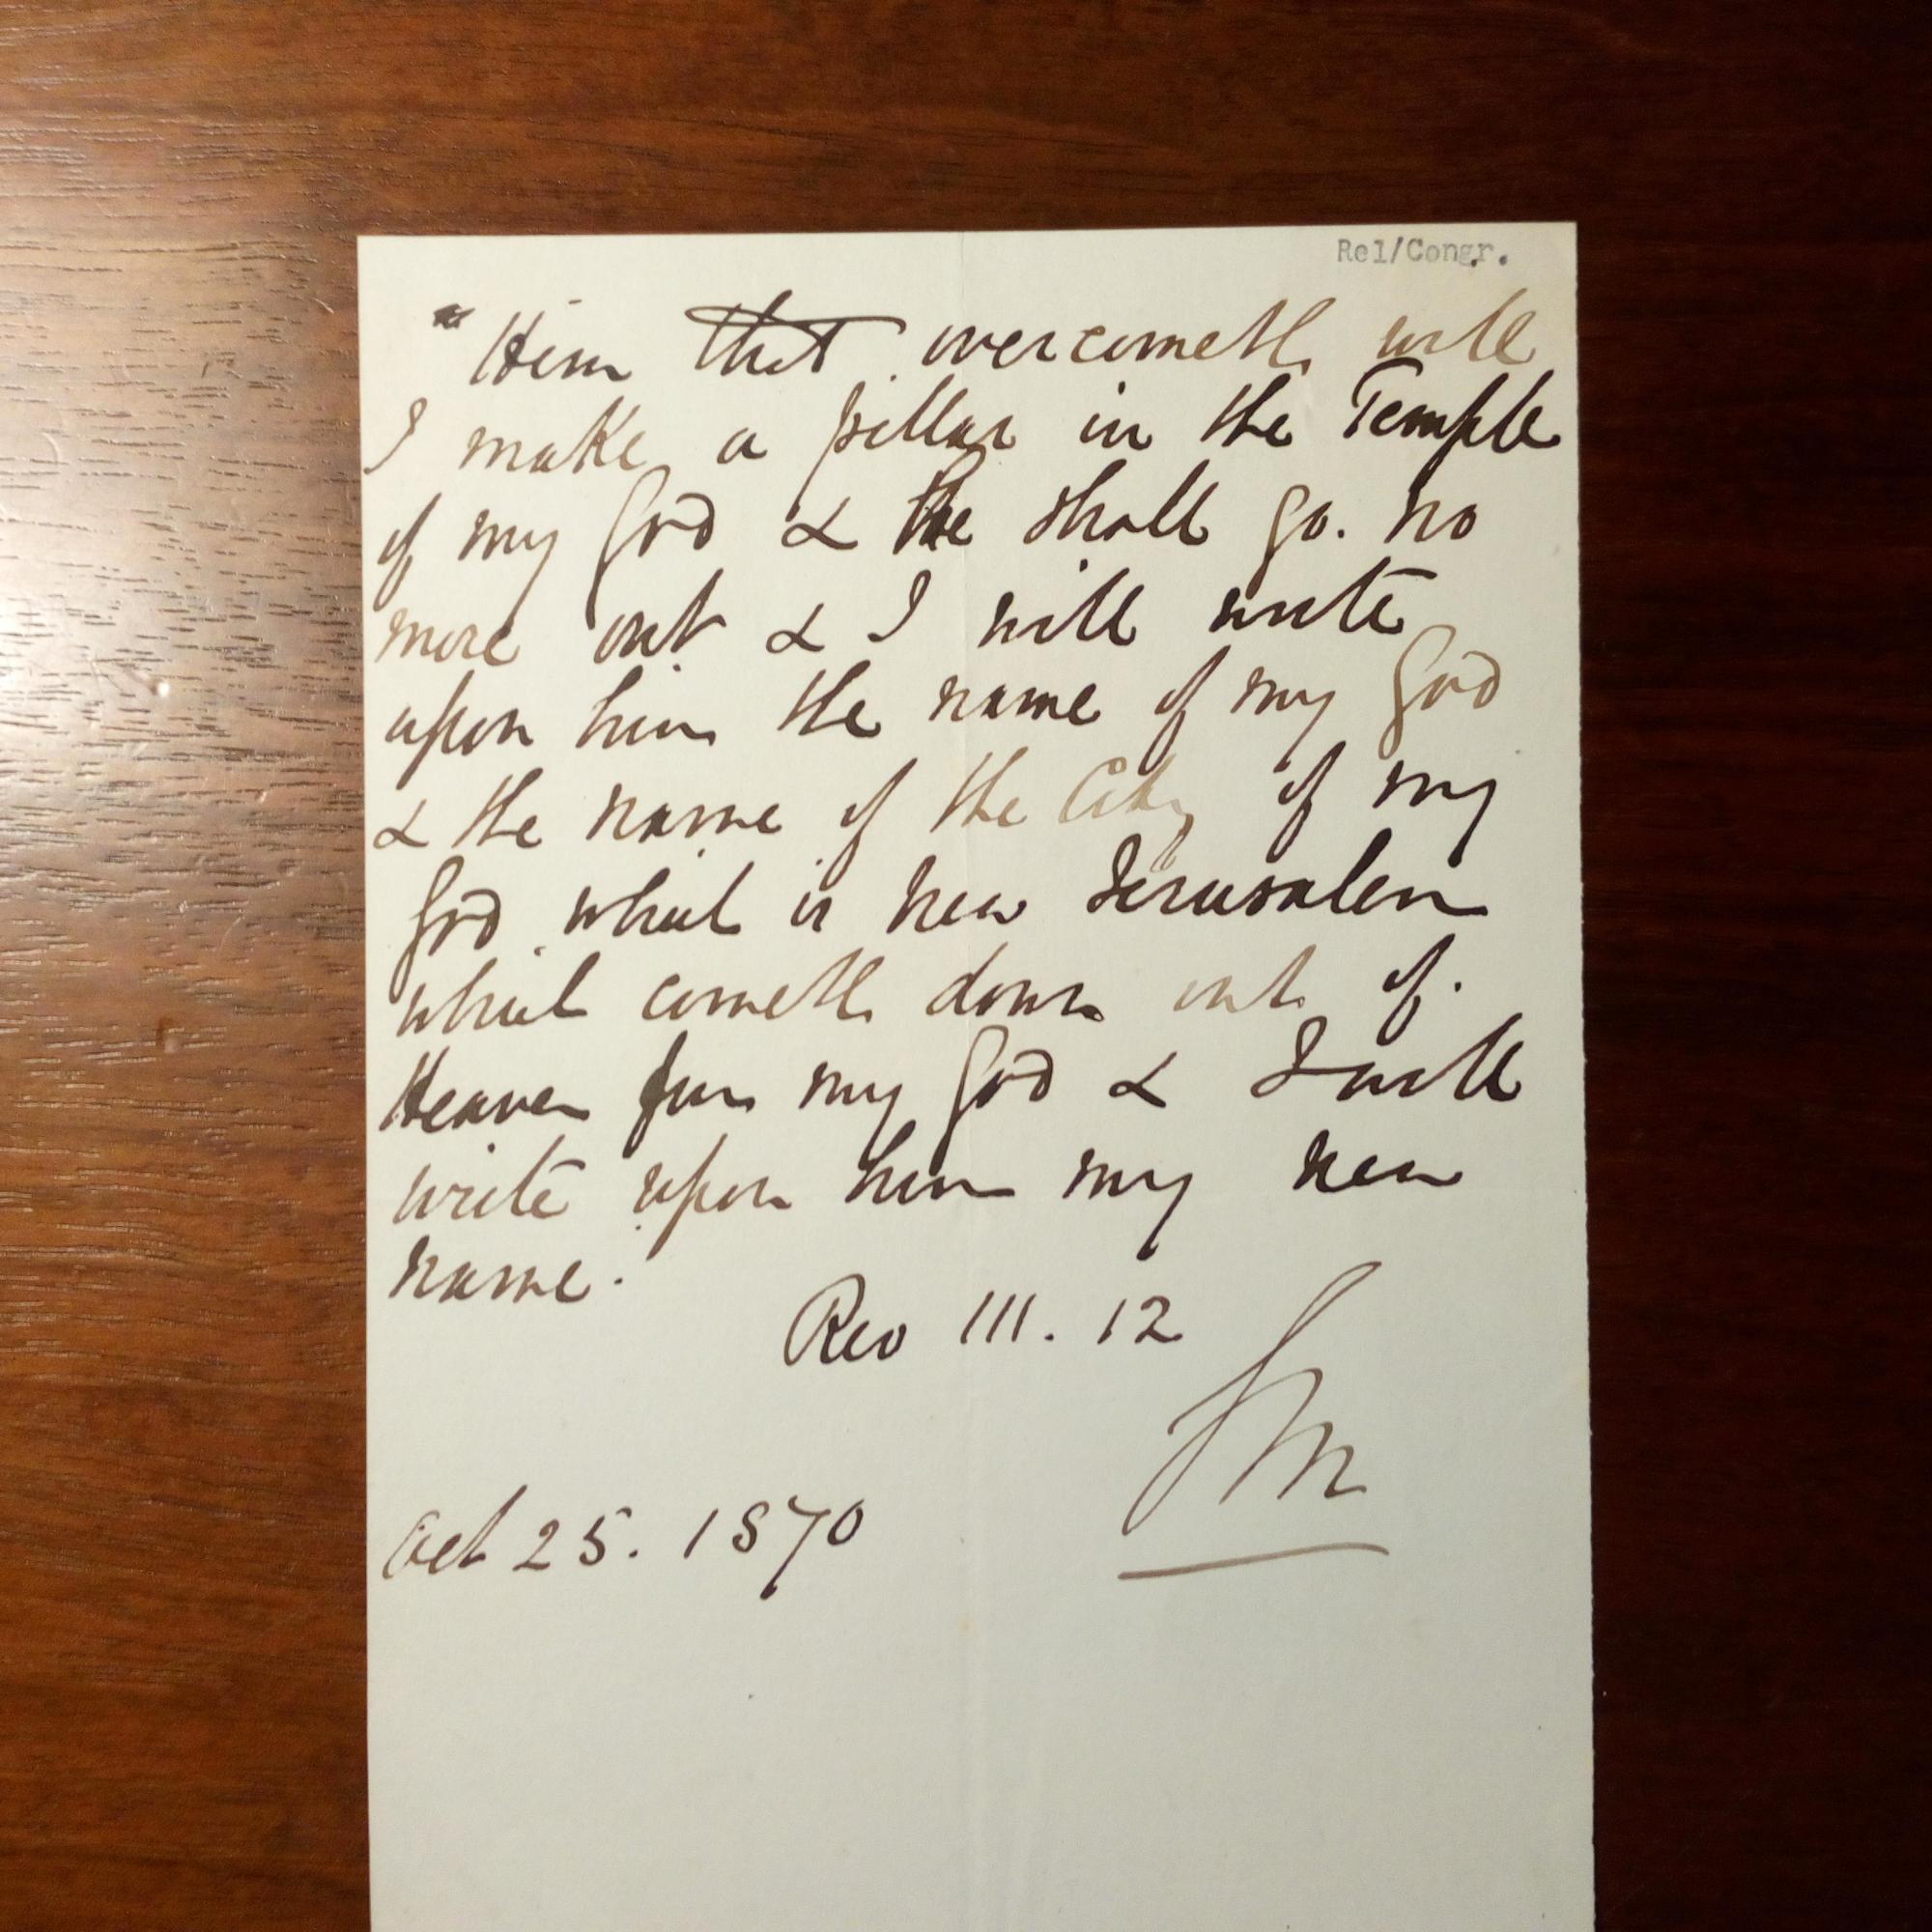 Rel/Congr.
"Him that overcometh will
I make a pillar in the Temple
of my God & he shall go no
more out & I will write
upon him the name of my God
& the name of the City of my
God which is new Jerusalem
which cometh down out of
Heaven from my God & I will
write upon him my new
name.
Rev III. 12
Oct 25. 1870